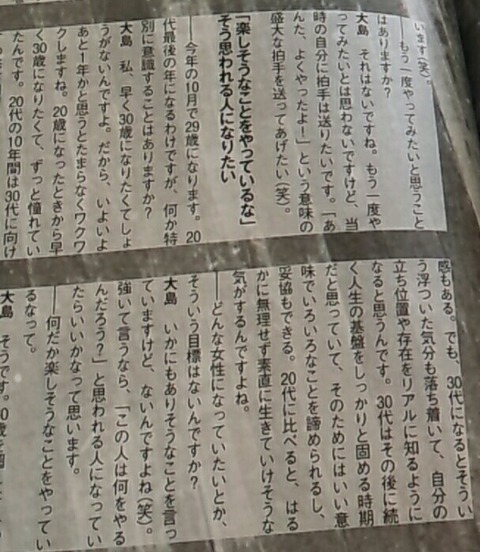 います(笑)。
――もう一度やってみたいと思うこと
はありますか?
大島　それはないですね。もう一度や
ってみたいとは思わないですけど、当
時の自分に拍手は送りたいです。「あ
んた、よくやったよ!」という意味の
盛大な拍手を送ってあげたい(笑)。
「楽しそうなことをやっているな」
そう思われる人になりたい
――今年の10月で29歳になります。20
代最後の年になるわけですが、何か特
別に意識することはありますか?
大島　私、早く30歳になりたくてしょ
うがないんですよ。だから、いよいよ
あと1年かと思うとたまらなくワクワ
クしますね。20歳になったときから早
く30歳になりたくて、ずっと憧れてい
たんです。20代の10年間は30代に向け
感もある。でも、30代になるとそうい
う浮ついた気分も落ち着いて、自分の
立ち位置や存在をリアルに知るように
なると思うんです。30代はその後に続
く人生の基盤をしっかりと固める時期
だと思っていて、そのためにはいい意
味でいろいろなことを諦められるし、
妥協もできる。20代に比べると、はる
かに無理せず素直に生きていけそうな
気がするんですよね。
――どんな女性になっていたいとか、
そういう目標はないんですか?
大島　いかにもありそうなことを言っ
ていますけど、ないんですよね(笑)。
強いて言うなら、「この人は何をやる
んだろう?」と思われる人になってい
たらいいかなって思います。
――何だか楽しそうなことをやってい
るなって。
大島　そうです。